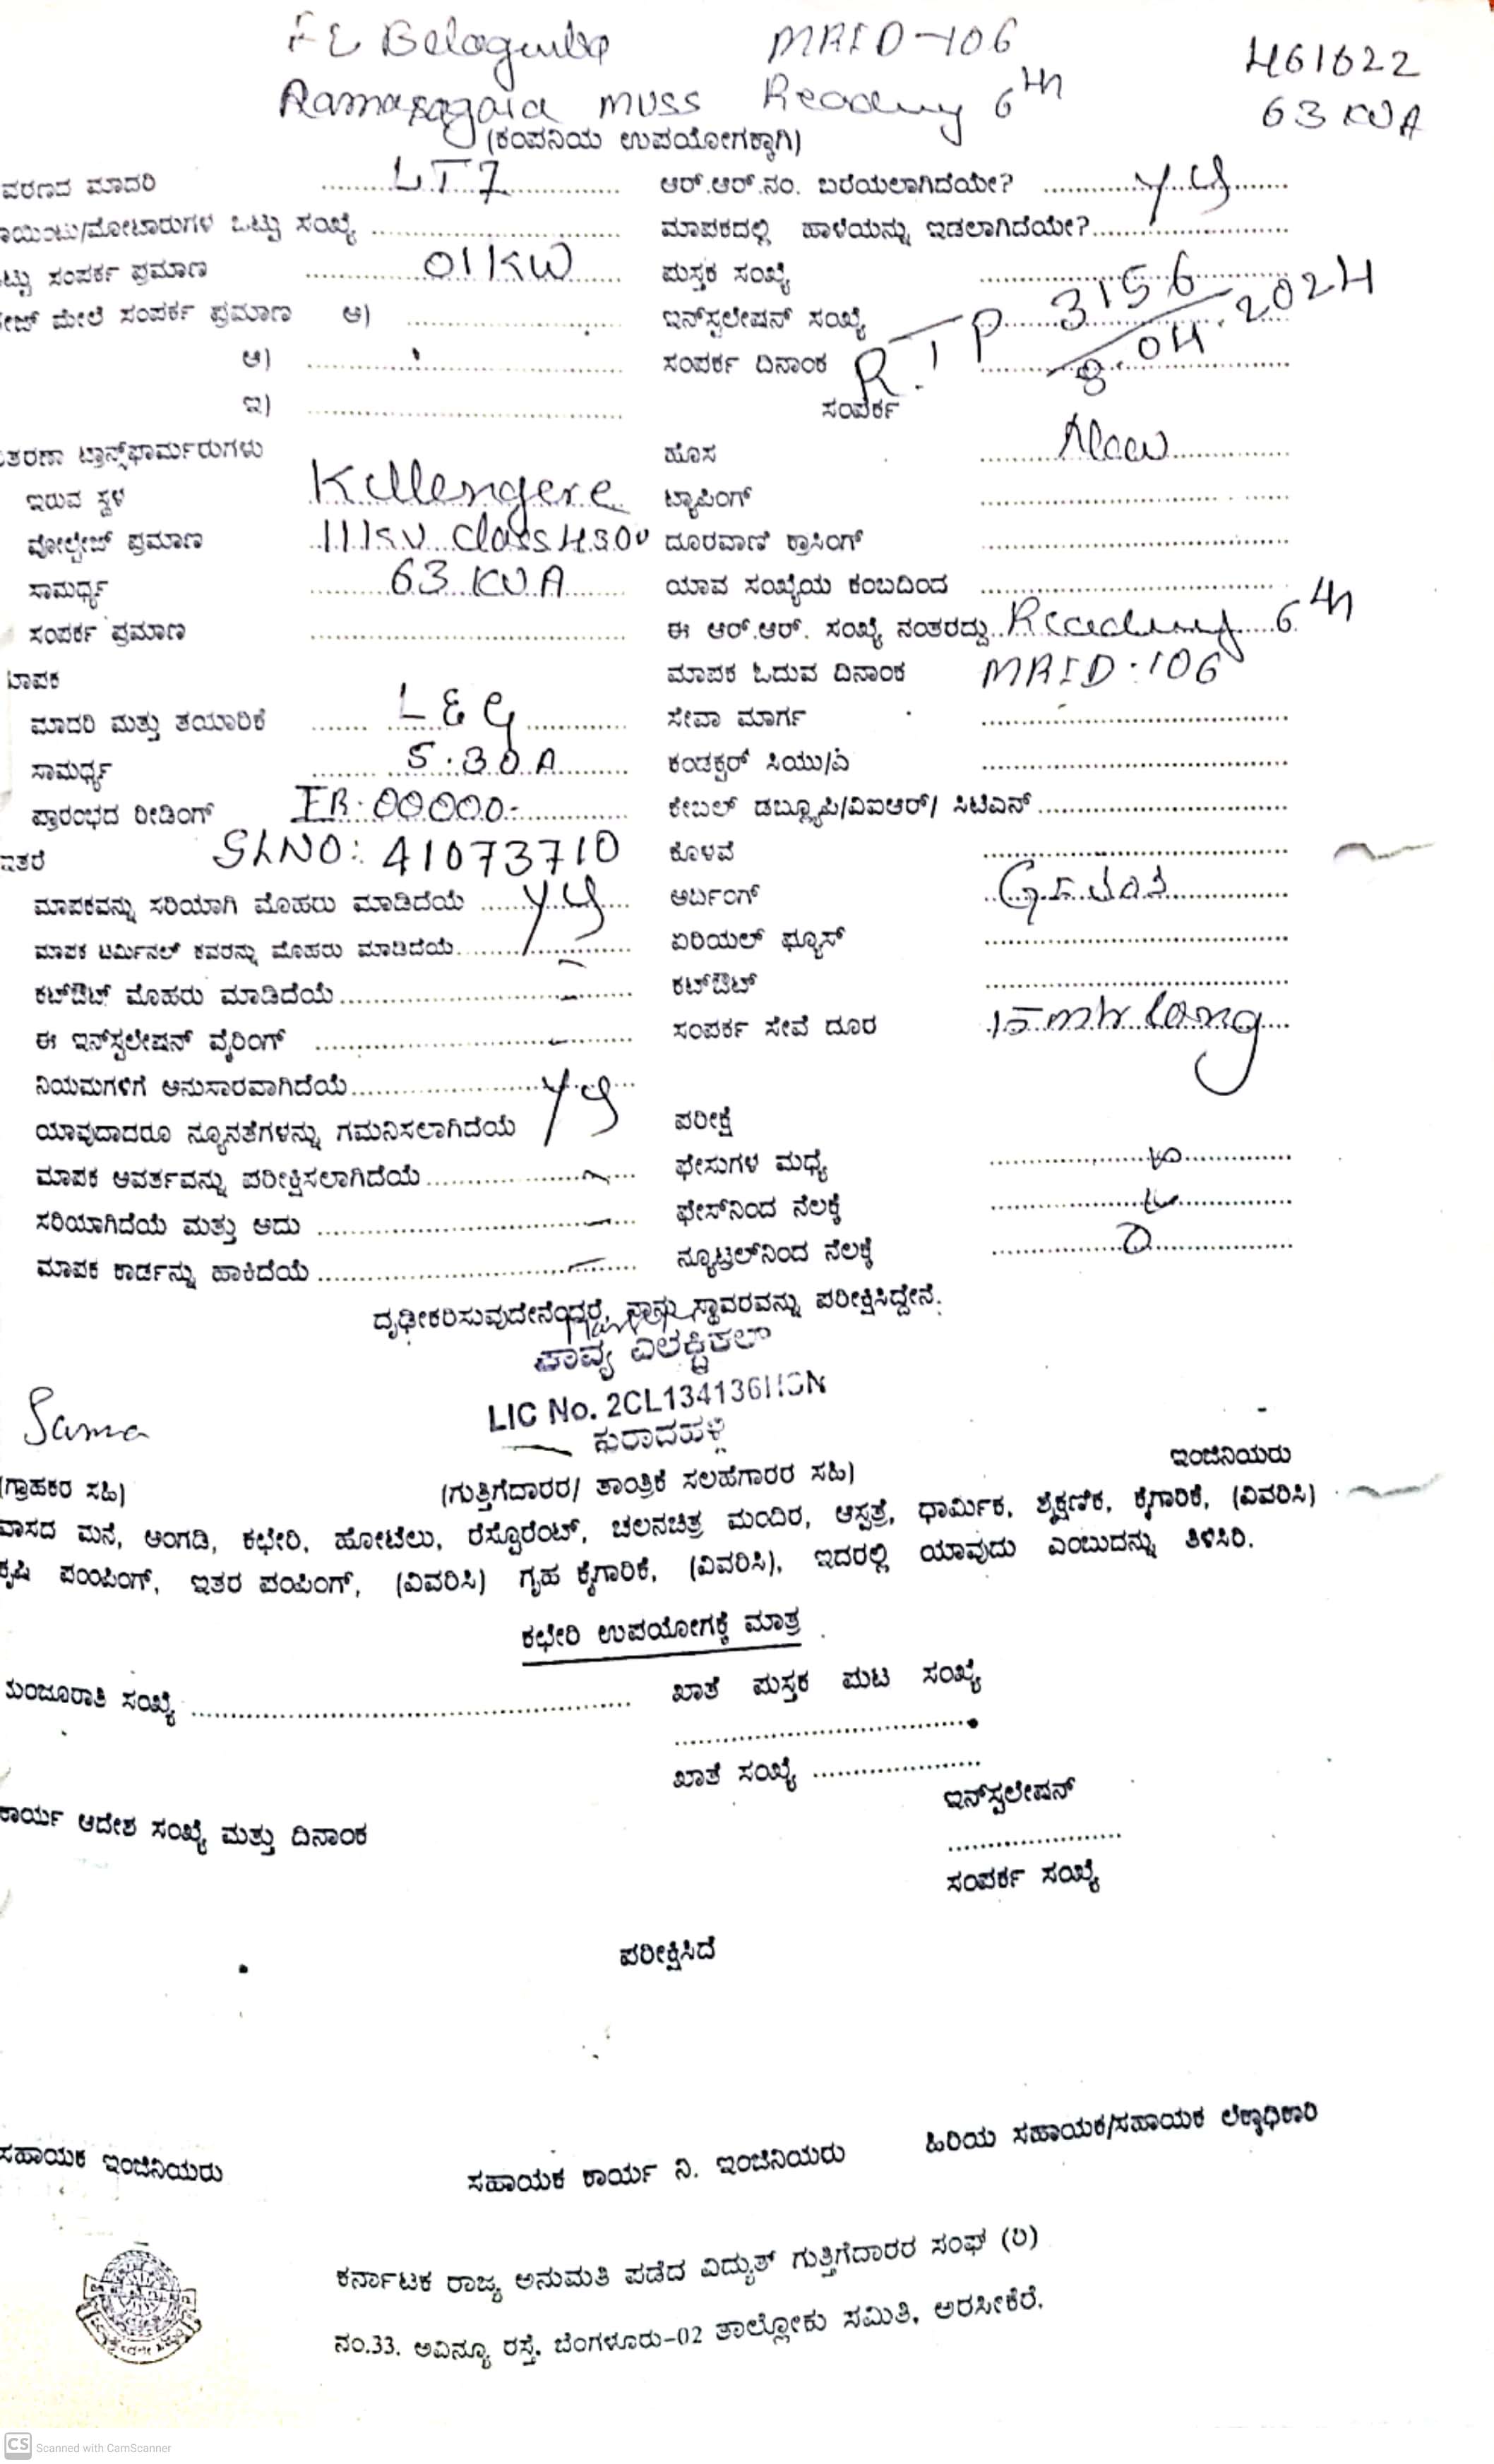 FE Belagumba MRID-106 461622
Ramasagara MUSS Reading 6th 63 KVA
(ಕಂಪನಿಯ ಉಪಯೋಗಕ್ಕಾಗಿ)
ವರಣದ ಮಾದರಿ LT7 ಆರ್.ಆರ್.ನಂ. ಬರೆಯಲಾಗಿದೆಯೇ?
ಾಯಿಂಟು/ಮೋಟಾರುಗಳ ಒಟ್ಟು ಸಂಖ್ಯೆ ಮಾಪಕದಲ್ಲಿ ಹಾಳೆಯನ್ನು ಇಡಲಾಗಿದೆಯೇ?
ಟ್ಟು ಸಂಪರ್ಕ ಪ್ರಮಾಣ 01KW ಪುಸ್ತಕ ಸಂಖ್ಯೆ
ೇಜ್ ಮೇಲೆ ಸಂಪರ್ಕ ಪ್ರಮಾಣ ಅ) ಇನ್‌ಸ್ಟಲೇಷನ್ ಸಂಖ್ಯೆ R.T P 3156
ಆ) ಸಂಪರ್ಕ ದಿನಾಂಕ 8.04.2024
ಇ) ಸಂಪರ್ಕ
ತರಣಾ ಟ್ರಾನ್ಸ್‌ಫಾರ್ಮರುಗಳು ಹೊಸ New
ಇರುವ ಸ್ಥಳ Killengere ಟ್ಯಾಪಿಂಗ್
ವೋಲ್ಟೇಜ್ ಪ್ರಮಾಣ 11KV class 430v ದೂರವಾಣಿ ಕ್ರಾಸಿಂಗ್
ಸಾಮರ್ಥ್ಯ 63 KVA ಯಾವ ಸಂಖ್ಯೆಯ ಕಂಬದಿಂದ
ಸಂಪರ್ಕ ಪ್ರಮಾಣ ಈ ಆರ್.ಆರ್. ಸಂಖ್ಯೆ ನಂತರದ್ದು Reading 6th
ಮಾಪಕ ಮಾಪಕ ಓದುವ ದಿನಾಂಕ MRID:106
ಮಾದರಿ ಮತ್ತು ತಯಾರಿಕೆ L&G ಸೇವಾ ಮಾರ್ಗ
ಸಾಮರ್ಥ್ಯ 5.30A ಕಂಡಕ್ಟರ್ ಸಿಯು/ಎ
ಪ್ರಾರಂಭದ ರೀಡಿಂಗ್ IR.00000- ಕೇಬಲ್ ಡಬ್ಲ್ಯೂಪಿ/ವಿಐಆರ್/ ಸಿಟಿಎಸ್
ಇತರೆ SLNO: 41073710 ಕೊಳವೆ
ಮಾಪಕವನ್ನು ಸರಿಯಾಗಿ ಮೊಹರು ಮಾಡಿದೆಯೆ ಅರ್ಥಿಂಗ್
ಮಾಪಕ ಟರ್ಮಿನಲ್ ಕವರನ್ನು ಮೊಹರು ಮಾಡಿದೆಯೆ ಏರಿಯಲ್ ಫ್ಯೂಸ್
ಕಟ್‌ಔಟ್ ಮೊಹರು ಮಾಡಿದೆಯೆ ಕಟ್‌ಔಟ್
ಈ ಇನ್‌ಸ್ಟಲೇಷನ್ ವೈರಿಂಗ್ ಸಂಪರ್ಕ ಸೇವೆ ದೂರ 15 mtr long
ನಿಯಮಗಳಿಗೆ ಅನುಸಾರವಾಗಿದೆಯೆ
ಯಾವುದಾದರೂ ನ್ಯೂನತೆಗಳನ್ನು ಗಮನಿಸಲಾಗಿದೆಯೆ ಪರೀಕ್ಷೆ
ಮಾಪಕ ಆವರ್ತವನ್ನು ಪರೀಕ್ಷಿಸಲಾಗಿದೆಯೆ ಫೇಸುಗಳ ಮಧ್ಯೆ
ಸರಿಯಾಗಿದೆಯೆ ಮತ್ತು ಅದು ಫೇಸ್‌ನಿಂದ ನೆಲಕ್ಕೆ
ಮಾಪಕ ಕಾರ್ಡನ್ನು ಹಾಕಿದೆಯೆ ನ್ಯೂಟ್ರಲ್‌ನಿಂದ ನೆಲಕ್ಕೆ
ದೃಢೀಕರಿಸುವುದೇನೆಂದರೆ, ನಾನು ಸ್ಥಾವರವನ್ನು ಪರೀಕ್ಷಿಸಿದ್ದೇನೆ.
ಕಾವ್ಯ ಎಲೆಕ್ಟ್ರಿಕಲ್
LIC No. 2CL134136HSN
ಕುರಾದಹಳ್ಳಿ
ಇಂಜಿನಿಯರು
(ಗ್ರಾಹಕರ ಸಹಿ) (ಗುತ್ತಿಗೆದಾರರ/ ತಾಂತ್ರಿಕ ಸಲಹೆಗಾರರ ಸಹಿ)
ವಾಸದ ಮನೆ, ಅಂಗಡಿ, ಕಛೇರಿ, ಹೋಟೆಲು, ರೆಸ್ಟೊರೆಂಟ್, ಚಲನಚಿತ್ರ ಮಂದಿರ, ಆಸ್ಪತ್ರೆ, ಧಾರ್ಮಿಕ, ಶೈಕ್ಷಣಿಕ, ಕೈಗಾರಿಕೆ, (ವಿವರಿಸಿ)
ಕೃಷಿ ಪಂಪಿಂಗ್, ಇತರ ಪಂಪಿಂಗ್, (ವಿವರಿಸಿ) ಗೃಹ ಕೈಗಾರಿಕೆ, (ವಿವರಿಸಿ), ಇದರಲ್ಲಿ ಯಾವುದು ಎಂಬುದನ್ನು ತಿಳಿಸಿರಿ.
ಕಛೇರಿ ಉಪಯೋಗಕ್ಕೆ ಮಾತ್ರ
ಮಂಜೂರಾತಿ ಸಂಖ್ಯೆ ಖಾತೆ ಪುಸ್ತಕ ಪುಟ ಸಂಖ್ಯೆ
ಖಾತೆ ಸಂಖ್ಯೆ
ಇನ್‌ಸ್ಟಲೇಷನ್
ಕಾರ್ಯ ಆದೇಶ ಸಂಖ್ಯೆ ಮತ್ತು ದಿನಾಂಕ
ಸಂಪರ್ಕ ಸಂಖ್ಯೆ
ಪರೀಕ್ಷಿಸಿದೆ
ಸಹಾಯಕ ಇಂಜಿನಿಯರು ಸಹಾಯಕ ಕಾರ್ಯ ನಿ. ಇಂಜಿನಿಯರು ಹಿರಿಯ ಸಹಾಯಕ/ಸಹಾಯಕ ಲೆಕ್ಕಾಧಿಕಾರಿ
ಕರ್ನಾಟಕ ರಾಜ್ಯ ಅನುಮತಿ ಪಡೆದ ವಿದ್ಯುತ್ ಗುತ್ತಿಗೆದಾರರ ಸಂಘ (ರಿ)
ನಂ.33. ಅವಿನ್ಯೂ ರಸ್ತೆ. ಬೆಂಗಳೂರು-02 ತಾಲ್ಲೋಕು ಸಮಿತಿ, ಅರಸೀಕೆರೆ.
CS Scanned with CamScanner